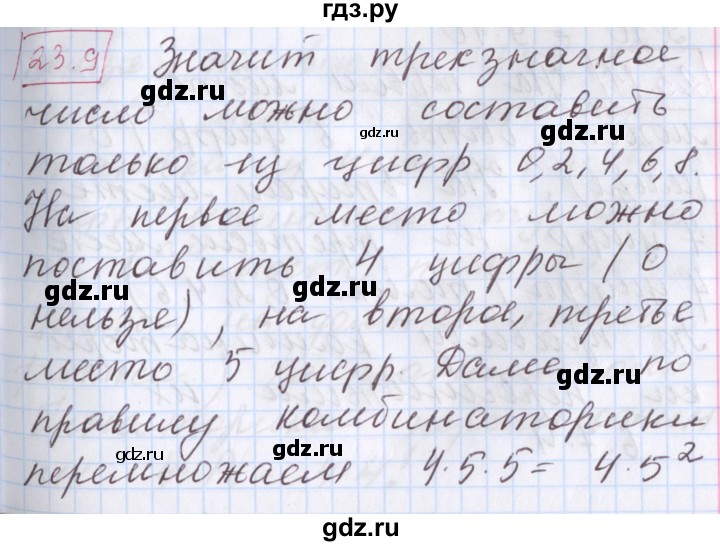 гдз.ру
23.9 Значит трехзначное
число можно составить
только из цифр 0,2,4,6,8.
На первое место можно
поставить 4 цифры (0
нельзя), на второе, третье
место 5 цифр. Далее по
правилу комбинаторики
перемножаем 4·5·5= 4·5²
gdz.ru
gdz.ru
gdz.ru
gdz.ru
gdz.ru
gdz.ru
gdz.ru
gdz.ru
gdz.ru
gdz.ru